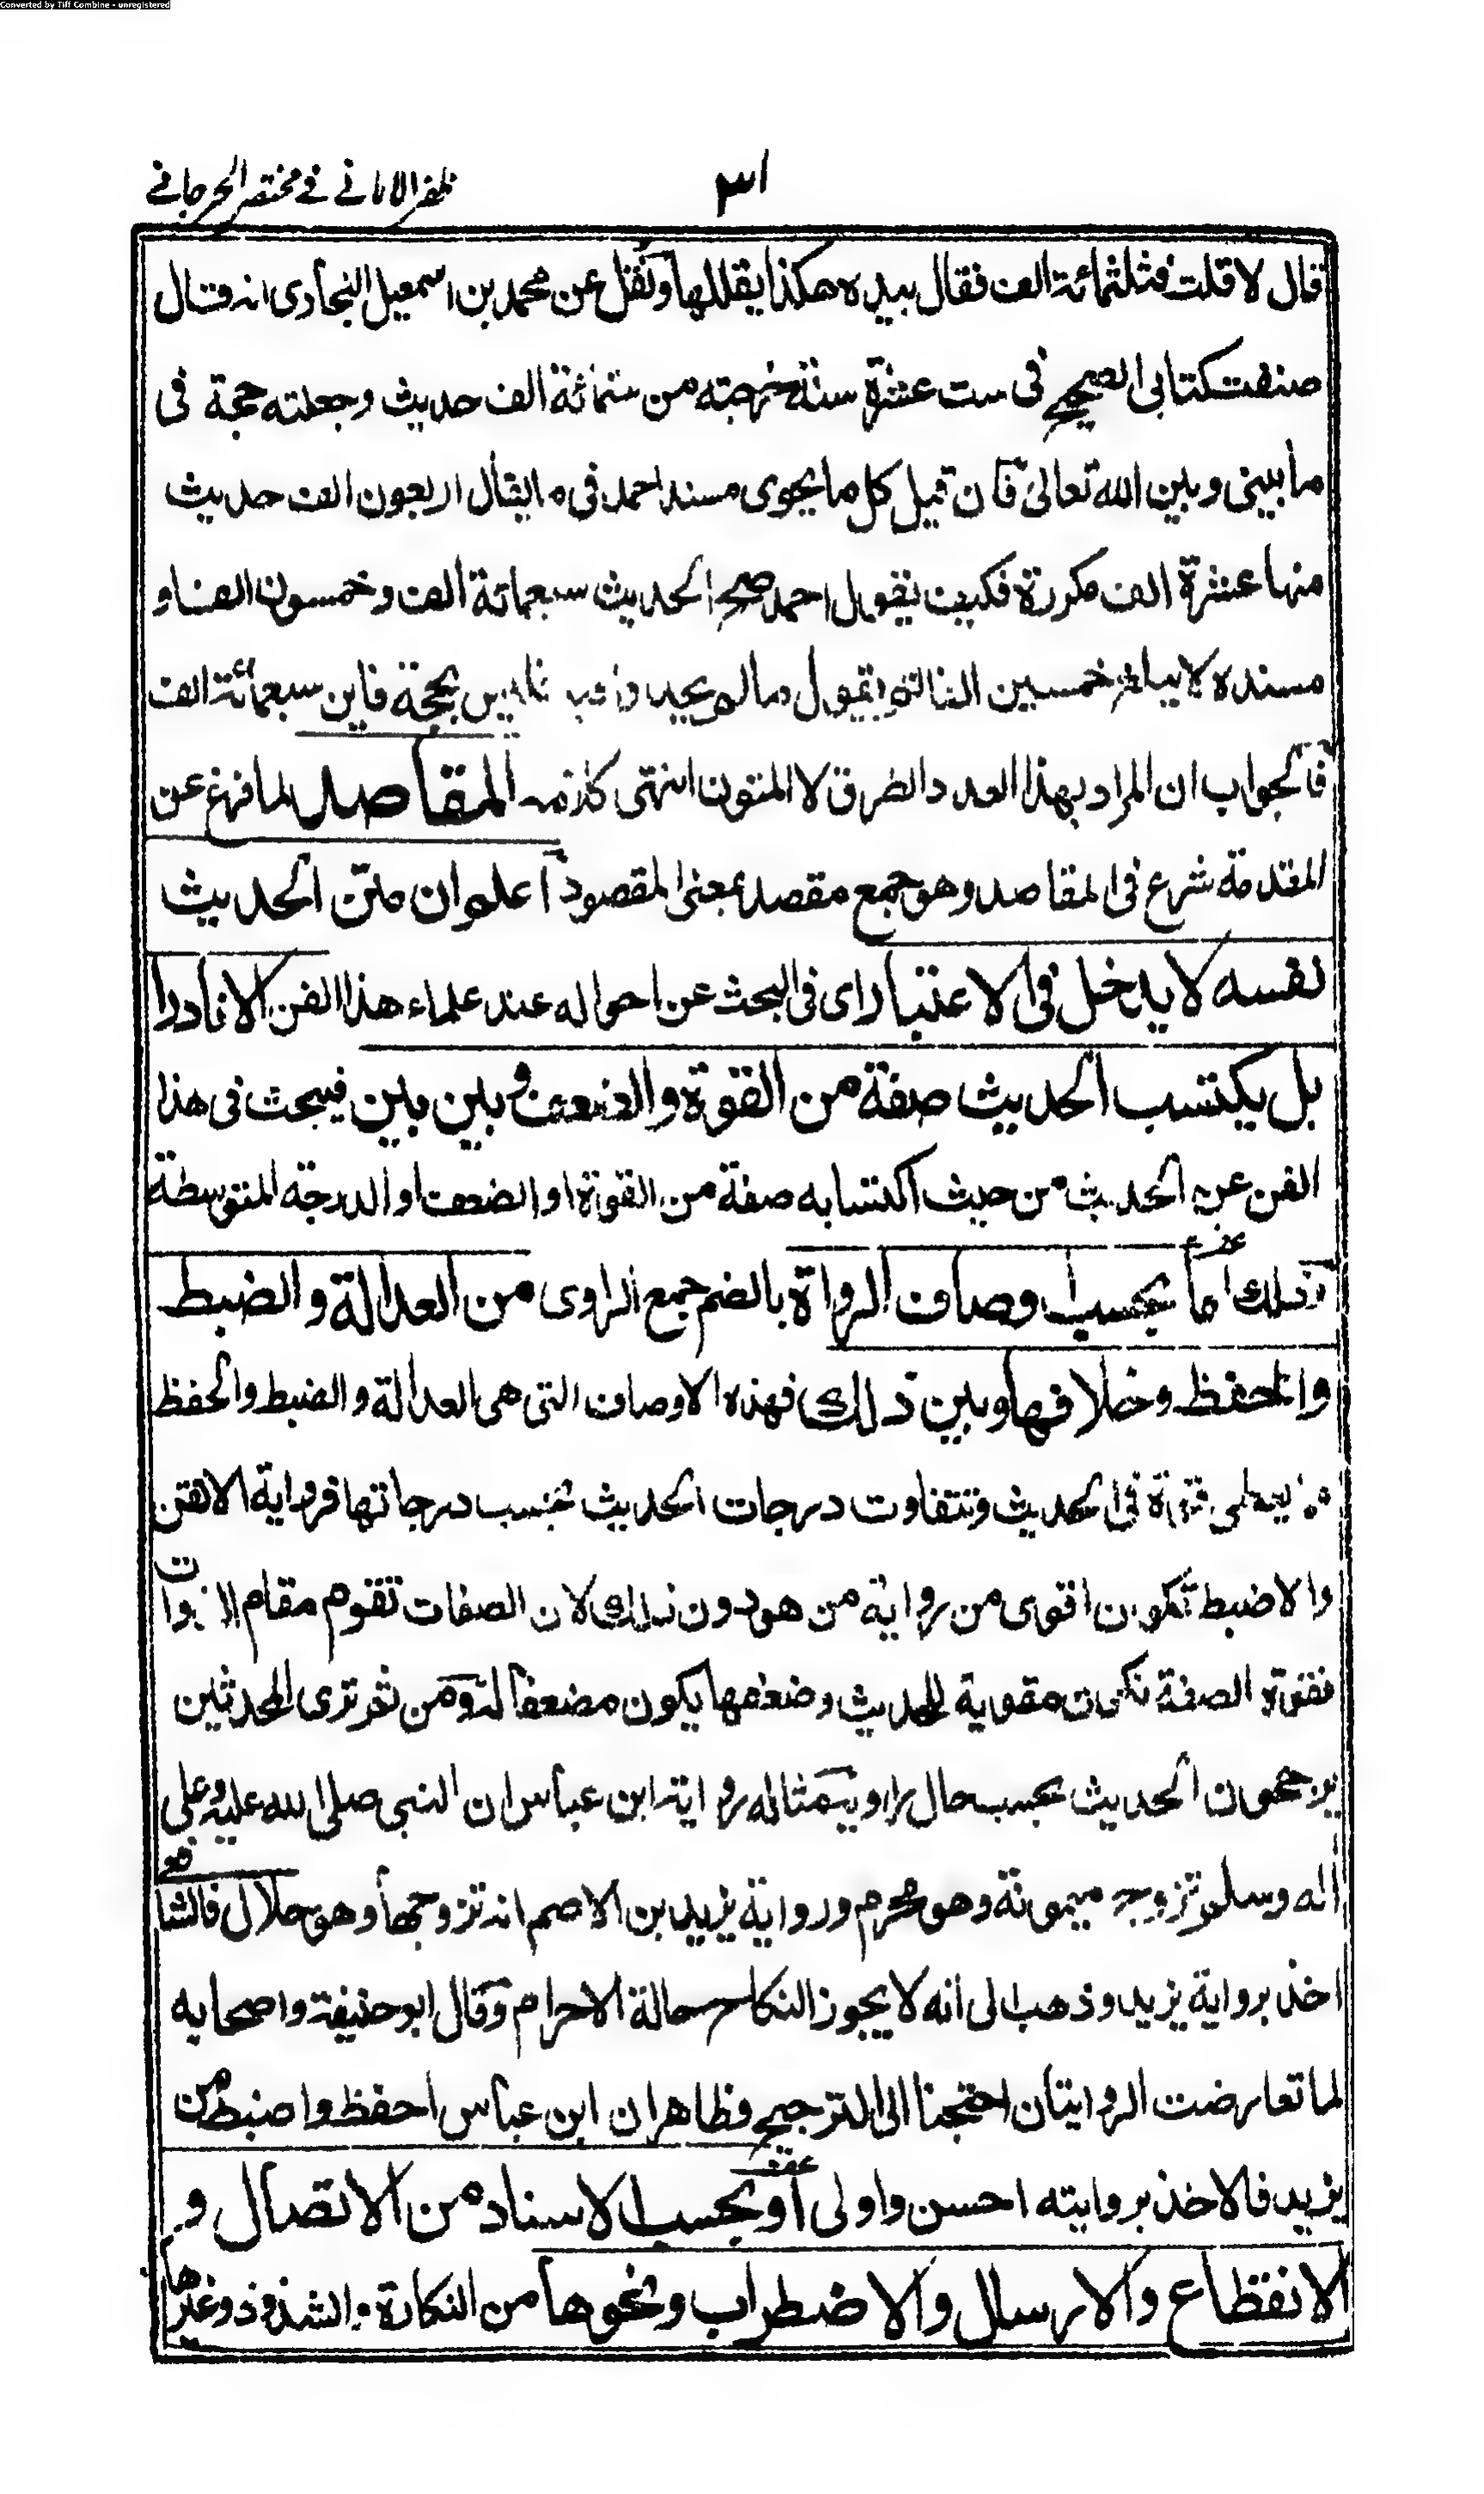 Converted by Tiff Combine - unregistered
ظفر الامانے فے مختصر الجرجانے
٣١
قال لا قلت فثلثمائة الف فقال بيده هكذا يقللها ونقل عن محمد بن اسمعيل البخارى انه قال
صنفت كتابى الصحيح فى ست عشرة سنة خرجته من ستمائة الف حديث وجعلته حجة فى
ما بينى وبين الله تعالى فان قيل كل ما يحوى مسند احمد فى ما يقال اربعون الف حديث
منها عشرة الف مكررة فكيف يقول احمد صح الحديث سبعمائة الف وخمسون الفا و
مسنده لا يبلغ خمسين الفا يقول ما لم يجد فليس بحجة فاين سبعمائة الف
فالجواب ان المراد بهذا العدد الطرق لا المتون انتهى كلامه المقاصد لما فرغ عن
المقدمة شرع فى المقاصد وهو جمع مقصد بمعنى المقصود اعلم ان متن الحديث
نفسه لا يدخل فى الاعتبار اى فى البحث عن احواله عند علماء هذا الفن الا نادرا
بل يكتسب الحديث صفة من القوة والضعف وبين بين فيبحث فى هذا
الفن عن الحديث من حيث اكتسابه صفة من القوة او الضعف او الدرجة المتوسطة
وذلك اما بحسب اوصاف الرواة بالضم جمع الراوى من العدالة والضبط
والحفظ وخلافها وبين ذلك فهذه الاوصاف التى هى العدالة والضبط والحفظ
يعطى قوة فى الحديث وتتفاوت درجات الحديث بحسب درجاتها فرواية الاتقن
والاضبط تكون اقوى من رواية من هو دون ذلك لان الصفات تقوم مقام الذوات
فقوة الصفة تكون مقوية للحديث وضعفها يكون مضعفا له ومن ثم ترى المحدثين
يرجحون الحديث بحسب حال راويه مثاله رواية ابن عباس ان النبى صلى الله عليه وعلى
اله وسلم تزوج ميمونة وهو محرم ورواية يزيد بن الاصم انه تزوجها وهو حلال فالشافعى
اخذ برواية يزيد وذهب الى انه لا يجوز النكاح حالة الاحرام وقال ابو حنيفة واصحابه
لما تعارضت الروايتان احتجنا الى الترجيح فظاهر ان ابن عباس احفظ واضبط من
يزيد فالاخذ بروايته احسن واولى او بحسب الاسناد من الاتصال و
الانقطاع والارسال والاضطراب ونحوها من النكارة والشذوذ وغيرها